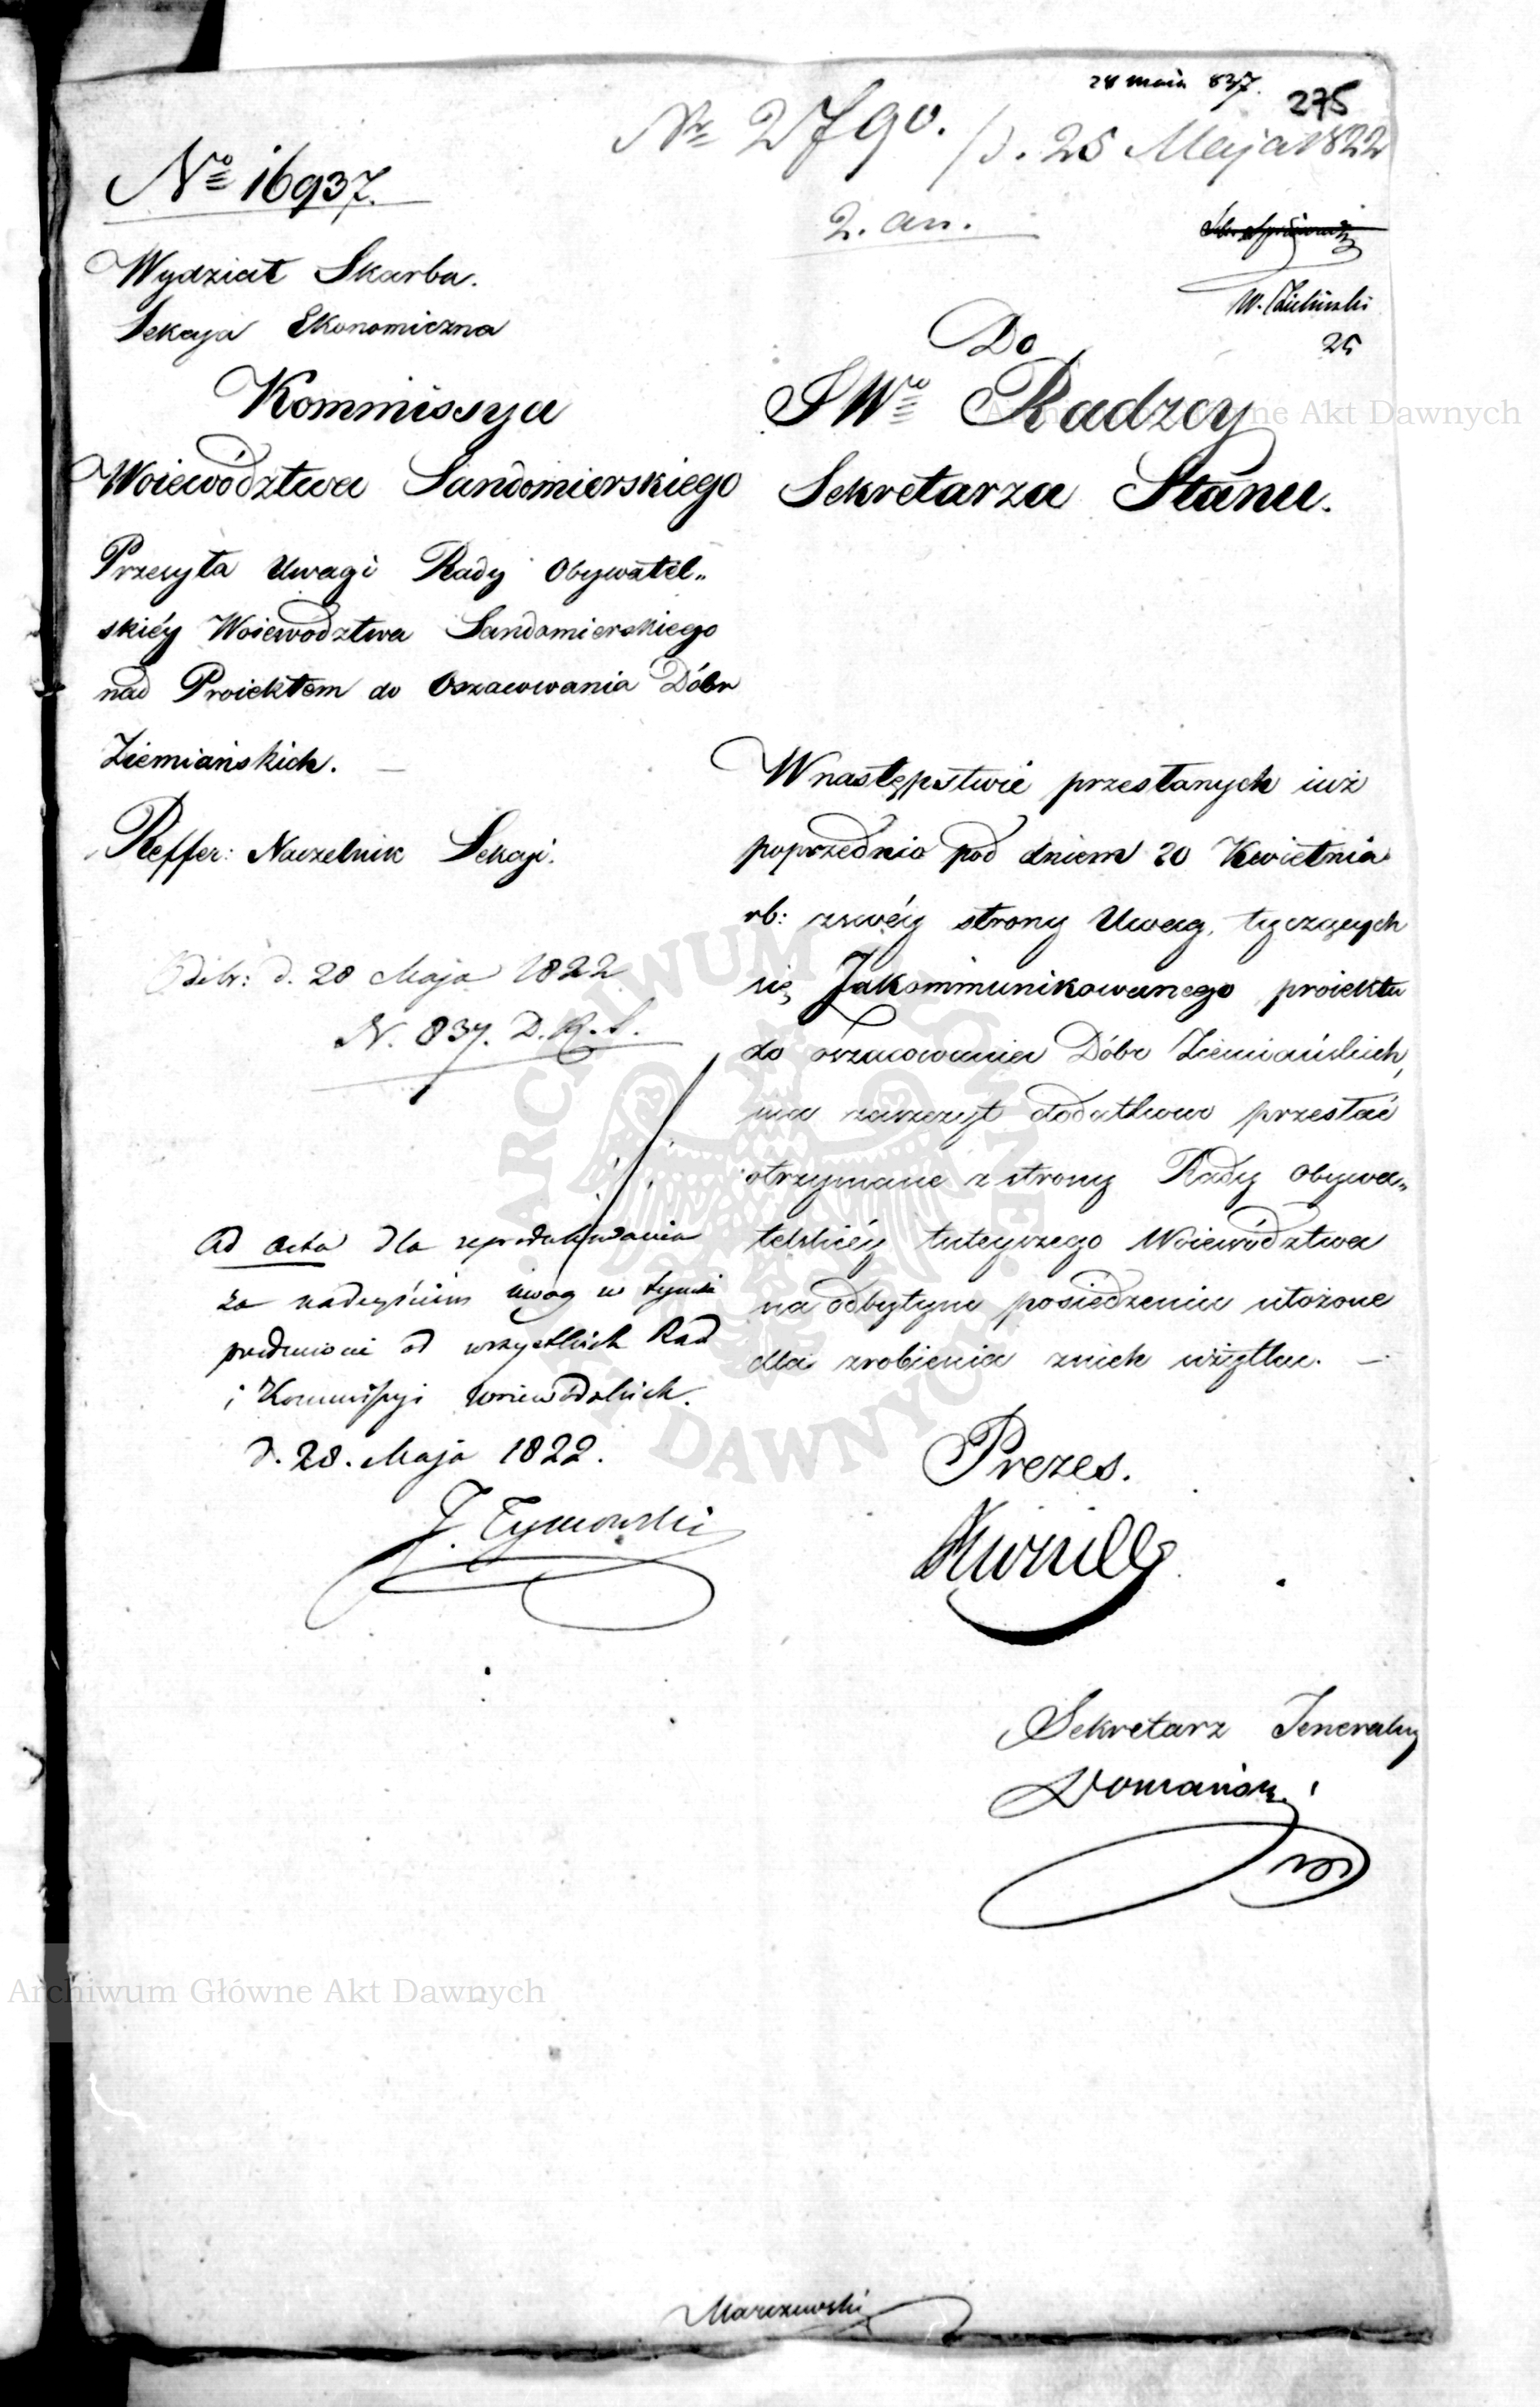 28 maia 837.
275
Nr 2790. / d. 25 Maja 1822
2. an.
W. Zieliński
25
No 16937.
Wydział Skarbu.
Sekcya Ekonomiczna
Kommissya
Woiewództwa Sandomierskiego
Przesyła Uwagi Rady Obywatel„
skiéy Woiewództwa Sandomierskiego
nad Proiektem do Oszacowania Dóbr
Ziemiańskich. —
Reffer: Naczelnik Sekcyi.
Odebr: d. 28 Maja 1822
N. 837. D.R.S.
Ad acta dla reprodukowania
za nadeyściem uwag w tymże
przedmiocie od wszystkich Rad
i Kommissyi woiewódzkich.
d. 28. Maja 1822.
J. Tymowski
Do
JWo Radzcy
Sekretarza Stanu.
W następstwie przesłanych iuż
poprzednio pod dniem 20 Kwietnia
rb: zswéy strony Uwag, tyczących
się Zakommunikowanego proiektu
do oszacowania Dóbr Ziemiańskich,
ma zaszczyt dodatkowo przesłać
otrzymane z strony Rady Obywa„
telskiéy tuteyszego Woiewództwa
na odbytym posiedzeniu ułożone
dla zrobienia znich użytku. —
Prezes.
Sekretarz Jeneralny
Domański
Marczewski
Archiwum Główne Akt Dawnych
Archiwum Główne Akt Dawnych
ARCHIWUM GŁÓWNE AKT DAWNYCH